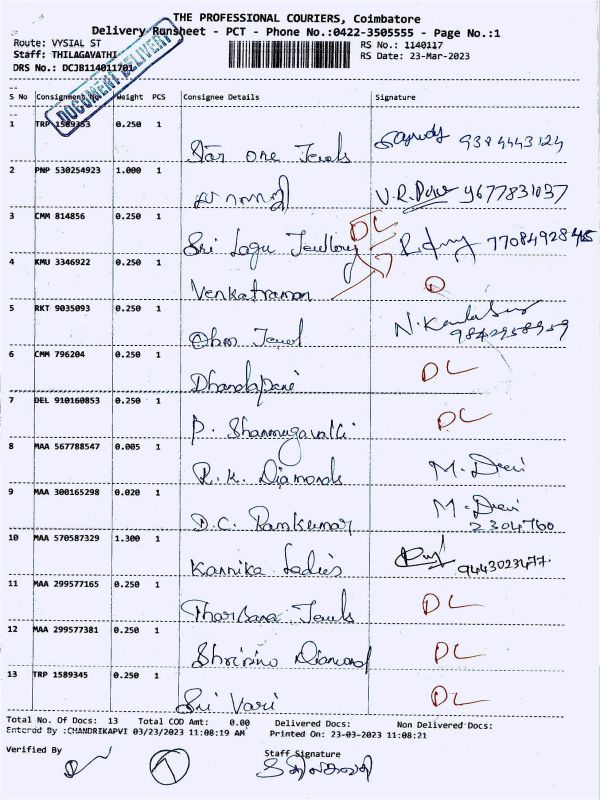 THE PROFESSIONAL COURIERS, Coimbatore
Delivery Runsheet - PCT - Phone No.:0422-3505555 - Page No.:1
Route: VYSIAL ST RS No.: 1140117
Staff: THILAGAVATHI RS Date: 23-Mar-2023
DRS No.: DCJB114011701
DOCUMENT DELIVERY
S No Consignment No Weight PCS Consignee Details Signature
1 TRP 1589353 0.250 1
Star one Jewels 9384443124
2 PNP 530254923 1.000 1
V.R. 9677831037
3 CMM 814856 0.250 1
DL
Sri Lagu Jewllery 7708492845
4 KMU 3346922 0.250 1
Venkatraman D
5 RKT 9035093 0.250 1
Ohm Jewel 9842958959
6 CMM 796204 0.250 1
Dhandapani DL
7 DEL 910160853 0.250 1
P. Shanmugavalli DL
8 MAA 567788547 0.005 1
R.K. Diamonds M. Devi
9 MAA 300165298 0.020 1
D.C. Ramkumar M. Devi
2304760
10 MAA 570587329 1.300 1
Kannika Ladies 9443023477
11 MAA 299577165 0.250 1
Jewels DL
12 MAA 299577381 0.250 1
Diamond DL
13 TRP 1589345 0.250 1
Sri Vari DL
Total No. Of Docs: 13 Total COD Amt: 0.00 Delivered Docs: Non Delivered Docs:
Entered By :CHANDRIKAPVI 03/23/2023 11:08:19 AM Printed On: 23-03-2023 11:08:21
Verified By Staff Signature